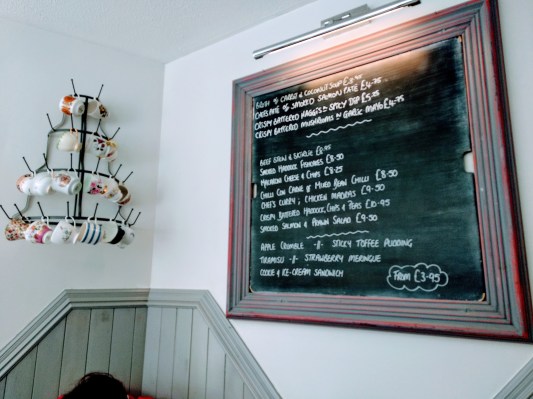 BOWL OF CARROT & COCONUT SOUP £3.95
CAFE PATE OF SMOKED SALMON PATE £4.75
CRISPY BATTERED HAGGIS & SPICY DIP £5.25
CRISPY BATTERED MUSHROOMS & GARLIC MAYO £4.75
BEEF STEW & £8.95
SMOKED HADDOCK FISHCAKES £8.50
MACARONI CHEESE & CHIPS £8.25
CHILLI CON CARNE OR MIXED BEAN CHILLI £8.50
CHEF'S CURRY; CHICKEN MADRAS £9.50
CRISPY BATTERED HADDOCK, CHIPS & PEAS £10.95
SMOKED SALMON & PRAWN SALAD £9.50
APPLE CRUMBLE -//- STICKY TOFFEE PUDDING
TIRAMISU -//- STRAWBERRY MERINGUE
COOKIE & ICE-CREAM SANDWICH
FROM £3.95